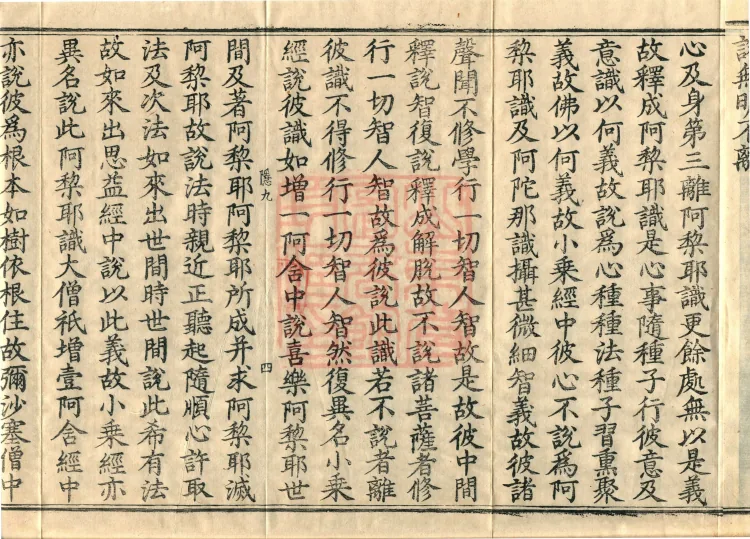 心及身第三離阿黎耶識更餘處無以是義
故釋成阿黎耶識是心事隨種子行彼意及
意識以何義故說為心種種法種子習熏聚
義故佛以何義故小乘經中彼心不說為阿
黎耶識及阿陀那識攝甚微細智義故彼諸
聲聞不修學行一切智人智故是故彼中間
釋說智復說釋成解脫故不說諸菩薩者修
行一切智人智故爲彼說此識若不說者離
彼識不得修行一切智人智然復異名小乘
經說彼識如增一阿含中說喜樂阿黎耶世
隱九 四
間及著阿黎耶阿黎耶所成并求阿黎耶滅
阿黎耶故說法時親近正聽起隨順心許取
法及次法如來出世間時世間說此希有法
故如來出思益經中說以此義故小乘經亦
異名說此阿黎耶識大僧祇增壹阿含經中
亦說彼爲根本如樹依根住故彌沙塞僧中